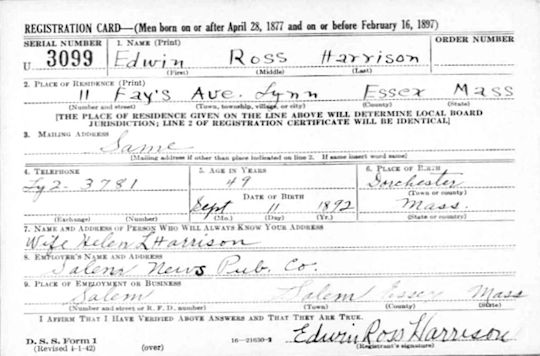 REGISTRATION CARD—(Men born on or after April 28, 1877 and on or before February 16, 1897)
SERIAL NUMBER 1. NAME (Print) ORDER NUMBER
U 3099 Edwin Ross Harrison
(First) (Middle) (Last)
2. PLACE OF RESIDENCE (Print)
11 Fay's Ave. Lynn Essex Mass
(Number and street) (Town, township, village, or city) (County) (State)
[THE PLACE OF RESIDENCE GIVEN ON THE LINE ABOVE WILL DETERMINE LOCAL BOARD
JURISDICTION; LINE 2 OF REGISTRATION CERTIFICATE WILL BE IDENTICAL]
3. MAILING ADDRESS
Same
[Mailing address if other than place indicated on line 2. If same insert word same]
4. TELEPHONE 5. AGE IN YEARS 6. PLACE OF BIRTH
Ly 2-3781 49 Dorchester
DATE OF BIRTH (Town or county)
Sept 11 1892 Mass.
(Exchange) (Number) (Mo.) (Day) (Yr.) (State or country)
7. NAME AND ADDRESS OF PERSON WHO WILL ALWAYS KNOW YOUR ADDRESS
Wife Helen L Harrison
8. EMPLOYER'S NAME AND ADDRESS
Salem News Pub. Co.
9. PLACE OF EMPLOYMENT OR BUSINESS
Salem Salem Essex Mass
(Number and street or R. F. D. number) (Town) (County) (State)
I AFFIRM THAT I HAVE VERIFIED ABOVE ANSWERS AND THAT THEY ARE TRUE.
D. S. S. Form 1 16—21630-2 Edwin Ross Harrison
(Revised 4-1-42) (over) (Registrant's signature)